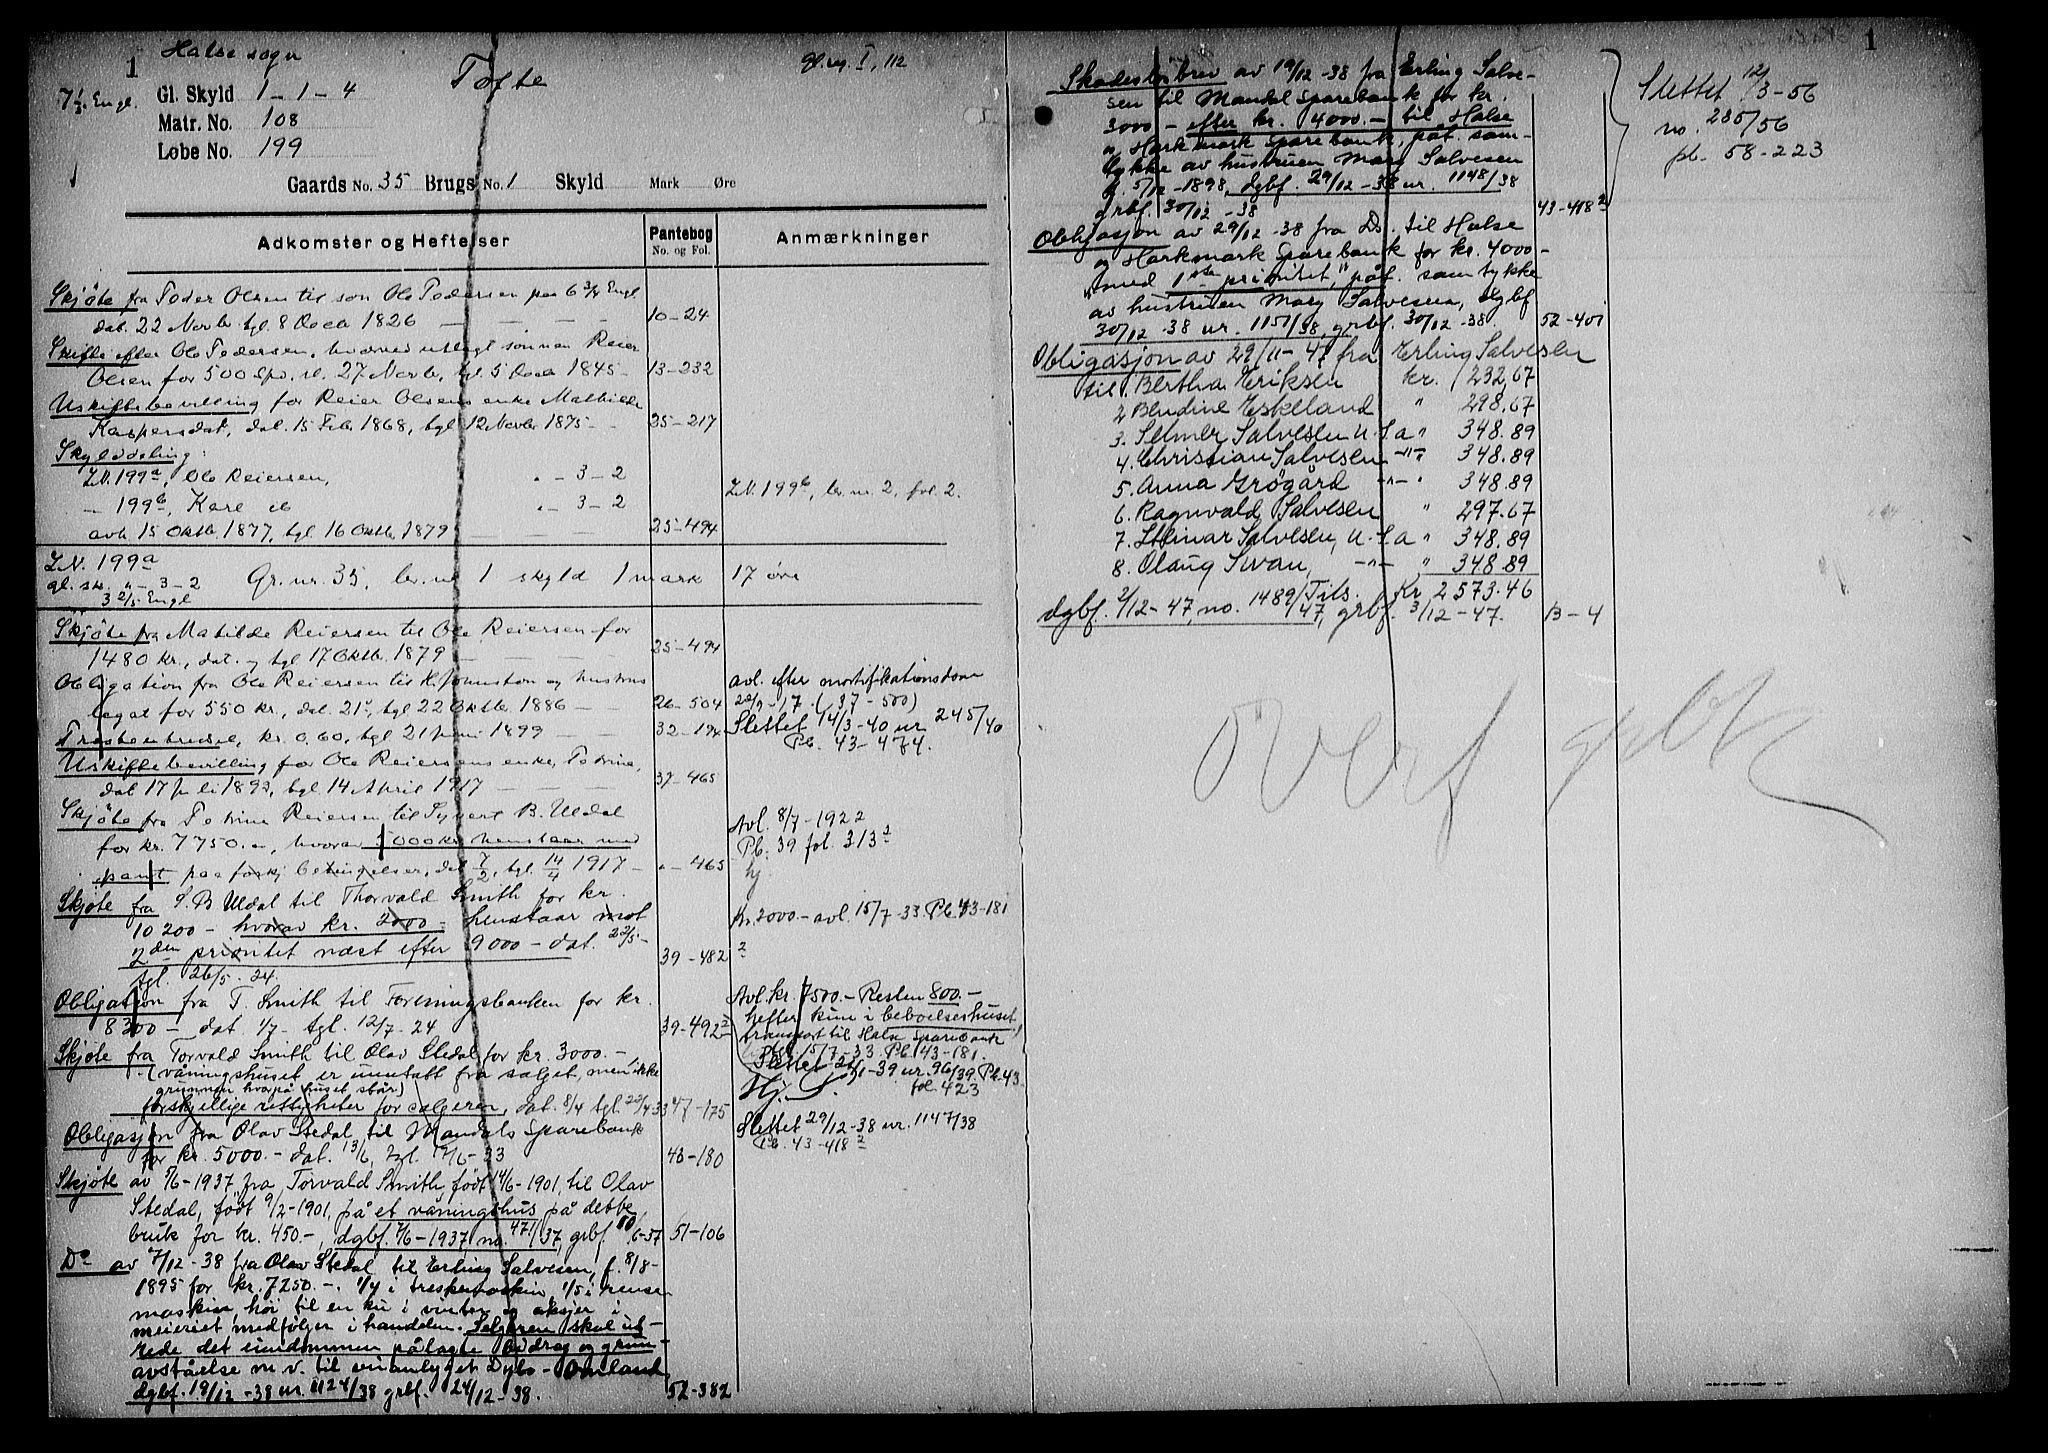 1
Halse sogn
Tofte
gl. reg. I, 112
7 1/3 Engl.
Gl. Skyld 1-1-4
Matr. No. 108
Løbe No. 199
Gaards No. 35 Brugs No. 1 Skyld Mark Øre
Adkomster og Heftelser
Pantebog
No. og Fol.
Anmærkninger
Skjöte fra Peder Olsen til sön Ole Pedersen paa 6 3/4 Engl
dat. 22 Novbr tgl. 8 Decb 1826 — 10-24
Skifte efter Ole Pedersen, hvorved utlagt sönnen Reier
Olsen for 500 Spd. 27 Novbr, tgl. 5 Decb 1845 - 13-232
Uskiftebevilling for Reier Olsens enke Mathilde
Kaspersdat, dat. 15 Feb. 1868, tgl 12 Novbr 1875 - 25-217
Skylddeling:
L.N. 199a, Ole Reiersen, " - 3 - 2
- 199b, Kare " - 3 - 2
L.N. 199b, br. nr. 2, fol. 2.
avh 15 Oktb. 1877, tgl 16 Oktb. 1879 25-494
L.N. 199a
gl. sk. " - 3 - 2
3 2/5 Engl
Gr. nr. 35, br. nr 1 skyld 1 mark 17 öre
Skjöte fra Matilde Reiersen til Ole Reiersen for
1480 kr., dat. og tgl 17 Oktb. 1879 — 25-494
Obligation fra Ole Reiersen til H. Johnston og hustrus
legat for 550 kr., dat. 21, tgl 22 Oktbr. 1886 — 26-504
avl. efter mortifikationsdom
22/9-17 (37-500)
Uskiftebevilling for Ole Reiersens enke, Petrine,
dat 17 juli 1892, tgl 14 April 1917 — 37-465
kr. 0,60, tgl 21 juni 1899 — 32-194
Slettet 14/3-40 nr 245/40
Pb. 43-474.
Skjöte fra Petrine Reiersen til Syvert B. Uldal
for kr. 7750.00, hvorav 5000 kr henstaar med
pant paa forskj betingelser, dat 7/2, tgl. 14/4 1917 - " - 465
Avl. 8/7-1922
Pb. 39 fol. 313²
hj
Skjöte fra S. B Uldal til Thorvald Smith for kr.
10200 - hvorav kr. 2000 - henstaar mot
2den prioritet næst efter 9000 - dat. 22/5 -
tgl. 26/5-24. 39-482
Kr. 2000 - avl. 15/7-33. Pb. 43-181
2
Obligation fra T. Smith til Foreningsbanken for kr.
8300 - dat. 1/7 - tgl. 12/7-24, 39-492²
Avl. kr. 7500.- Resten 800.-
hefter kun i beboelseshuset
transport til Halse Sparebank
15/7-33. Pb. 43-181.
Slettet 21/1-39 nr. 96/39. Pb. 43-
fol. 423
Hj. S.
Skjöte fra Torvald Smith til Olav Stedal for kr. 3000.-
(våningshuset er unntatt fra salget, men ikke
grunnen hvorpå huset står)
forskjellige rettigheter for selgeren, dat. 8/4 tgl. 22/4 33 47-175
Obligasjon fra Olav Stedal til Mandals Sparebank
for kr. 5000.- dat. 13/6, tgl. 17/6-33 43-180
Slettet 29/12-38 nr. 1147/38
Pb. 43-418²
Skjöte av 5/6-1937 fra Torvald Smith, født 14/6-1901, til Olav
Stedal, født 9/2-1901, på et våningshus på dette
bruk for kr. 450.-, dgbf. 7/6-1937 no. 471/37, grbf. 10/6-37 51-106
Do av 7/12-38 fra Olav Stedal til Erling Salvesen, f. 8/8-
1895 for kr. 7250.-. 1/4 i treskemaskin, 1/5 i rense
maskin, höi til en ku i vinter og aksjer i
meieriet medfölger i handelen. Selgeren skal ut-
rede det eiendommen pålagte bidrag og grunn-
avståelse m. v. til veianlegget Dybo - Omland
dgbf. 19/12-38 nr. 1124/38 grbf. 24/12-38. 52-382
1
Skadesløsbrev av 19/12-38 fra Erling Salve-
sen til Mandal Sparebank for kr.
3000 - efter kr. 4000.- til Halse
og Harkmark Sparebank, påt. sam-
tykke av hustruen Mary Salvesen
f. 5/12-1898, dgbf. 29/12-38 nr. 1148/38
grbf. 30/12-38 43-418²
Slettet 12/3-56
no. 285/56
pb. 58-223
Obligasjon av 29/12-38 fra Ds. til Halse
og Harkmark Sparebank for kr. 4000-
"med 1ste prioritet", påt. samtykke
av hustruen Mary Salvesen, dgbf
30/12-38 nr. 1151/38, grbf. 30/12-38. 52-401
Obligasjon av 29/11-47 fra Erling Salvesen
til 1. Bertha Eriksen kr. 232,67
2 Bendine Eskeland " 298.67
3. Selmer Salvesen U.S.a " 348.89
4. Christian Salvesen -"- " 348.89
5. Anna Grøgård -"- " 348.89
6. Ragnvald Salvesen " 297.67
7. Steinar Salvesen, U.S.a " 348.89
8. Olaug Svan, -"- " 348.89
Tils. Kr 2573.46
dgbf. 2/12-47, no. 1489/47, grbf. 3/12-47. 13-4
Overf grbok